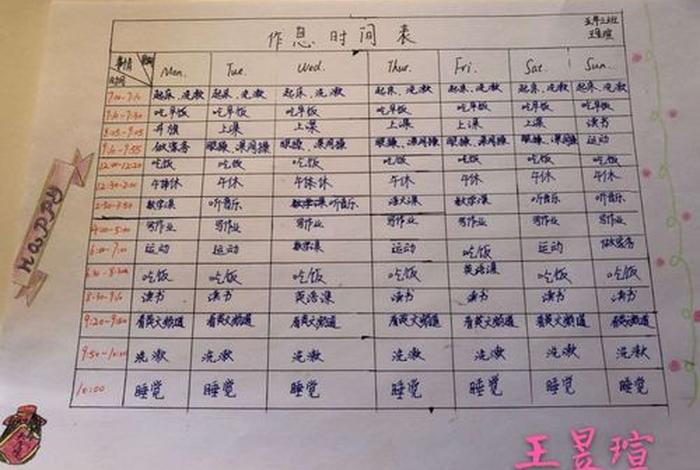 作息时间表
五年三班
王昱瑄
事情 星期 时间 Mon. Tue. Wed. Thur. Fri. Sat. Sun.
起床、洗漱 起床、洗漱 起床、洗漱 起床、洗漱 起床、洗漱 起床、洗漱 起床、洗漱
吃早饭 吃早饭 吃早饭 吃早饭 吃早饭 吃早饭 吃早饭
8:05-9:05 升旗 上课 上课 上课 上课 上课 读书
做家务 眼操、课间操 眼操、课间操 眼操、课间操 眼操、课间操 眼操、课间操 运动
12:00-12:20 吃饭 吃饭 吃饭 吃饭 吃饭 吃饭 吃饭
12:30-2:00 午休 午休 午休 午休 午休 午休 午休
数学课 听音乐 数学课 听音乐 数学课 听音乐 听音乐
4:00-5:00 写作业 写作业 写作业 写作业 写作业 写作业 写作业
6:00-7:00 运动 运动 数学课 运动 吃饭 运动 做家务
吃饭 吃饭 吃饭 吃饭 英语课 吃饭 吃饭
读书 读书 英语课 读书 读书 读书 读书
看英文频道 看英文频道 看英文频道 看英文频道 看英文频道 看英文频道 看英文频道
9:50-10:00 洗漱 洗漱 洗漱 洗漱 洗漱 洗漱 洗漱
10:00 睡觉 睡觉 睡觉 睡觉 睡觉 睡觉 睡觉
HAPPY
王昱瑄